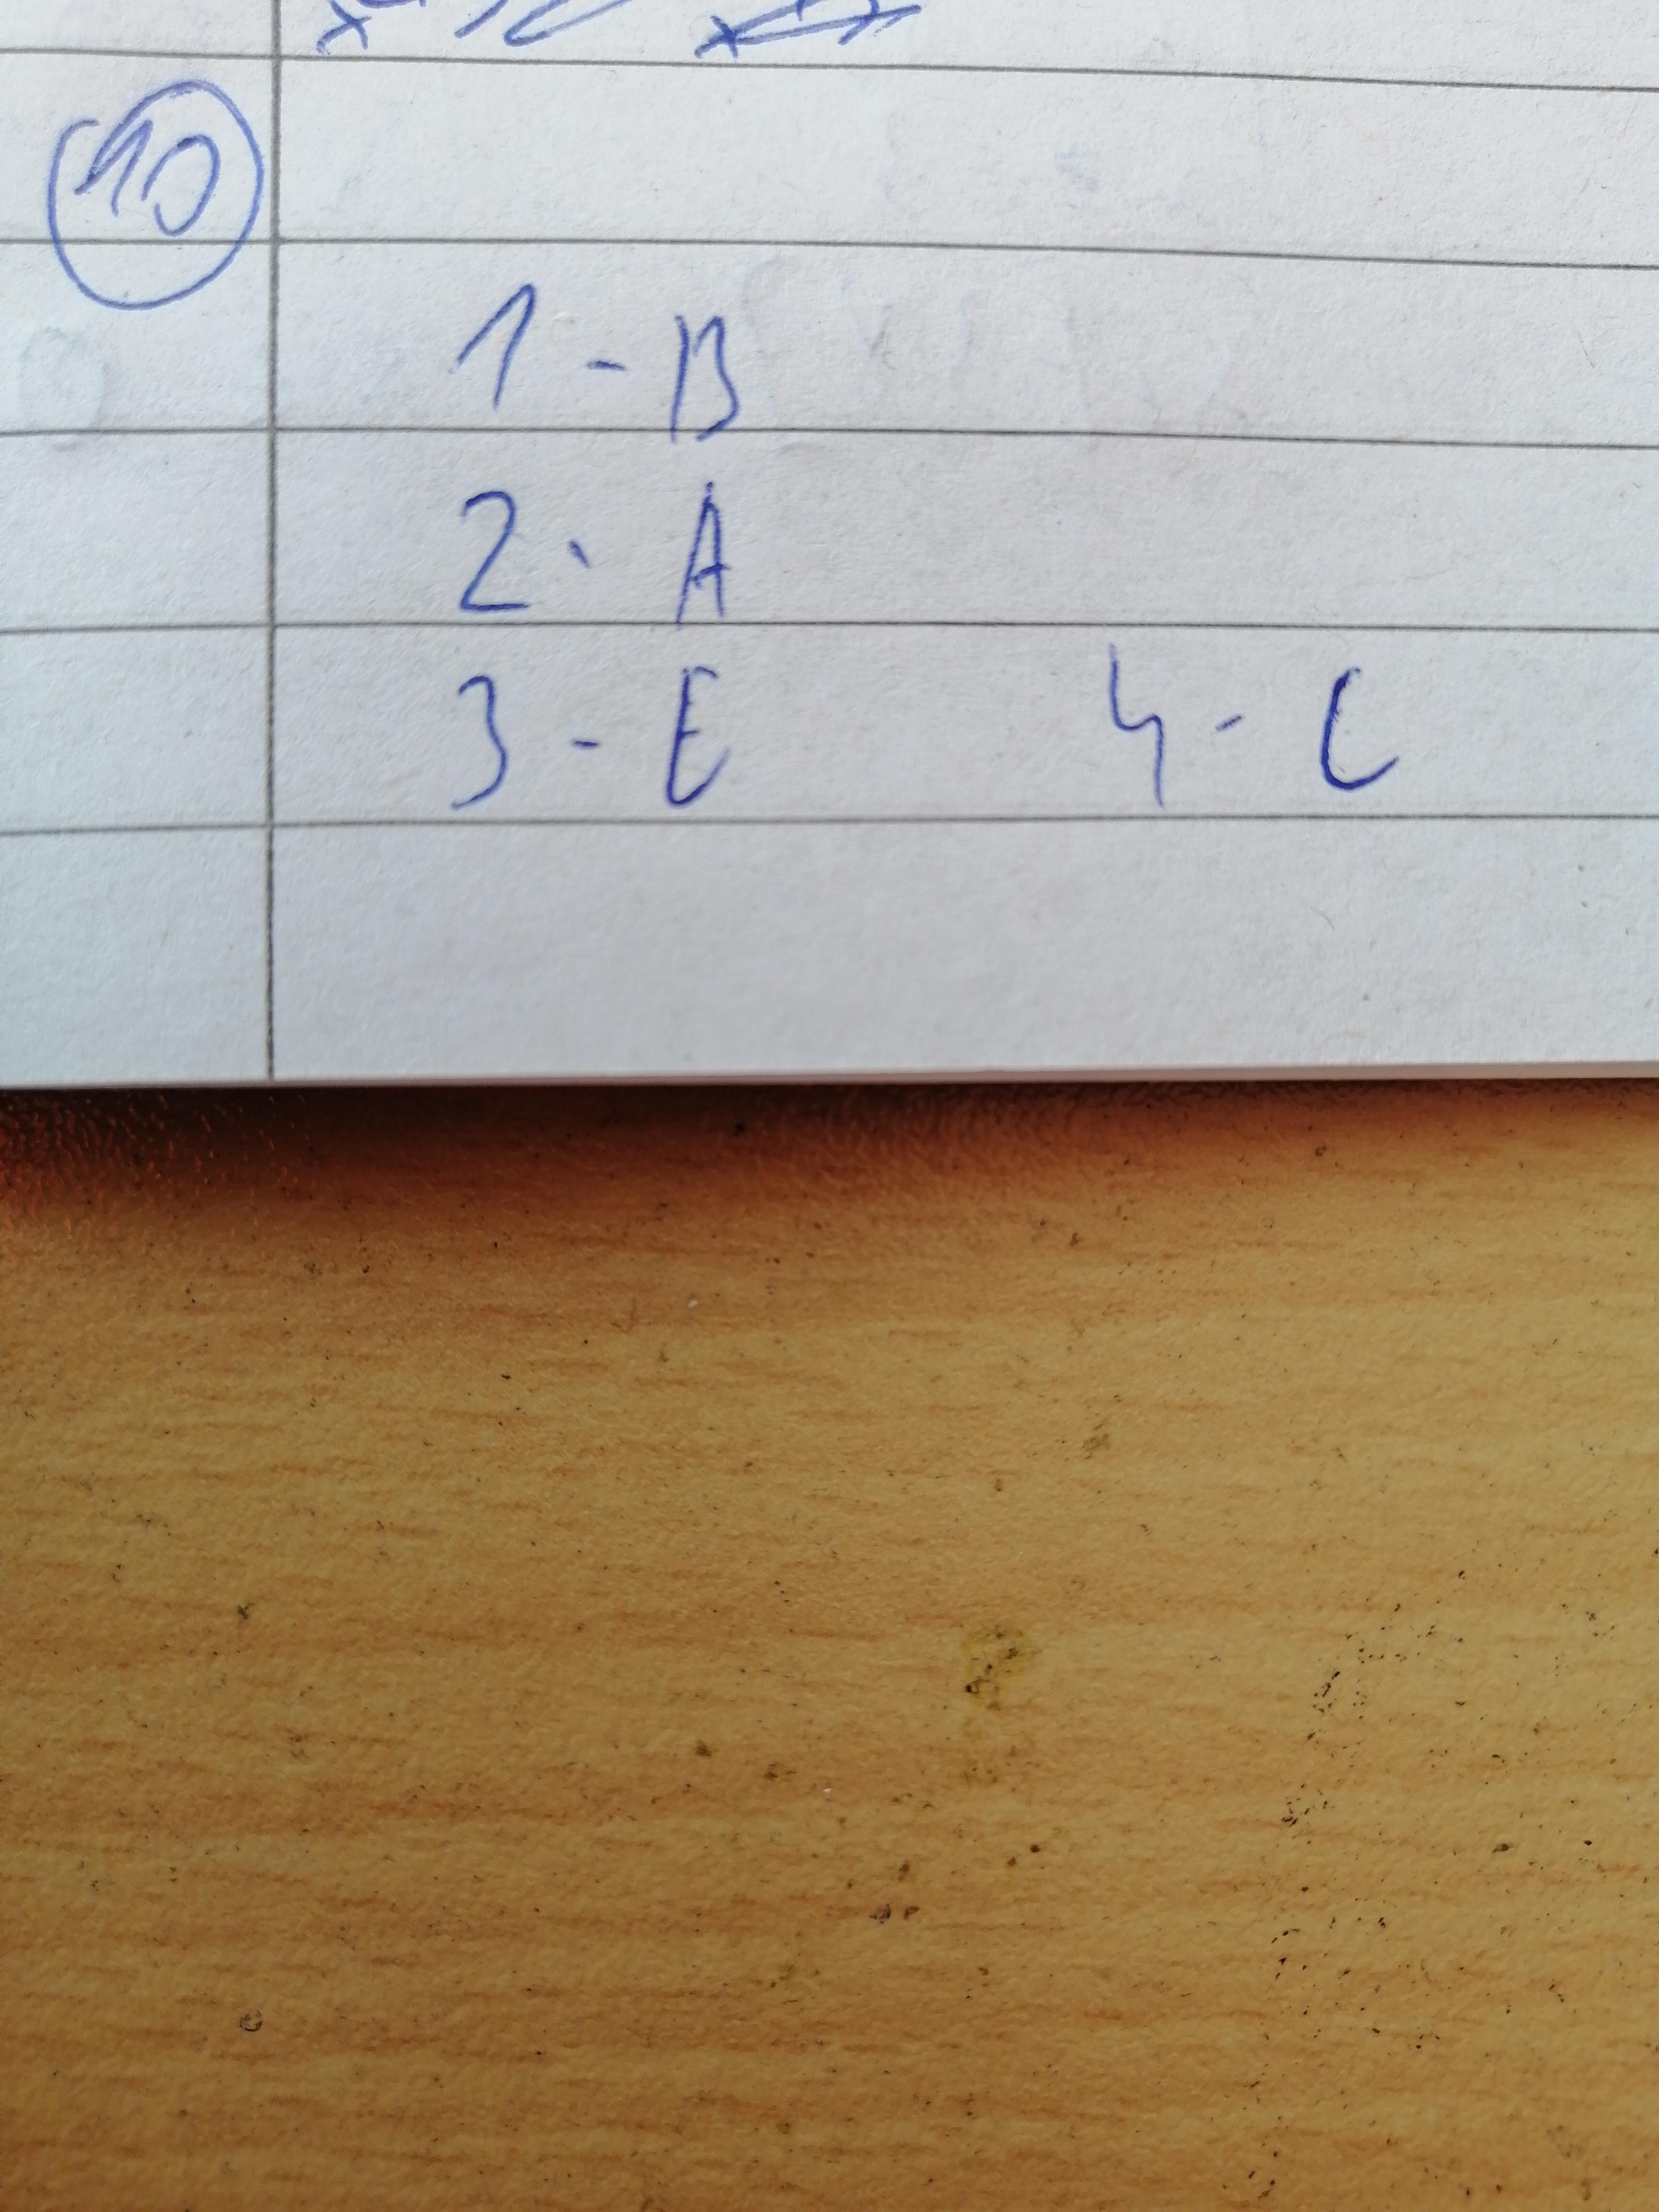 10
1 - B
2 - A
3 - E 4 - C